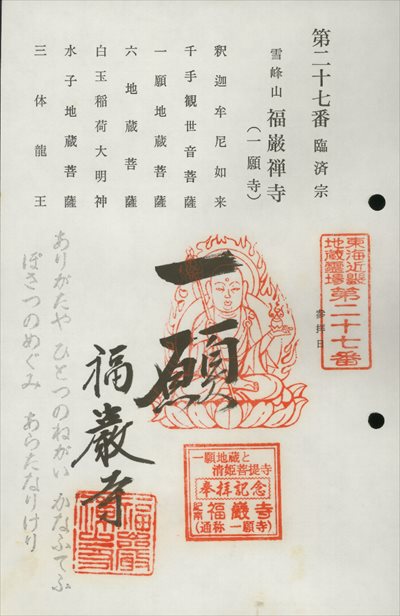 第二十七番 臨済宗
雪峰山 福巌禅寺
(一願寺)
釈迦牟尼如来
千手観世音菩薩
一願地蔵菩薩
六地蔵菩薩
白玉稲荷大明神
水子地蔵菩薩
三体龍王
東海近畿
地蔵霊場
第二十七番
参拝日
一願
福巌寺
一願地蔵と
清姫菩提寺
奉拝記念
紀南 福巌寺
(通称一願寺)
ありがたや ひとつのねがい かなふてふ
ぼさつのめぐみ あらたなりけり